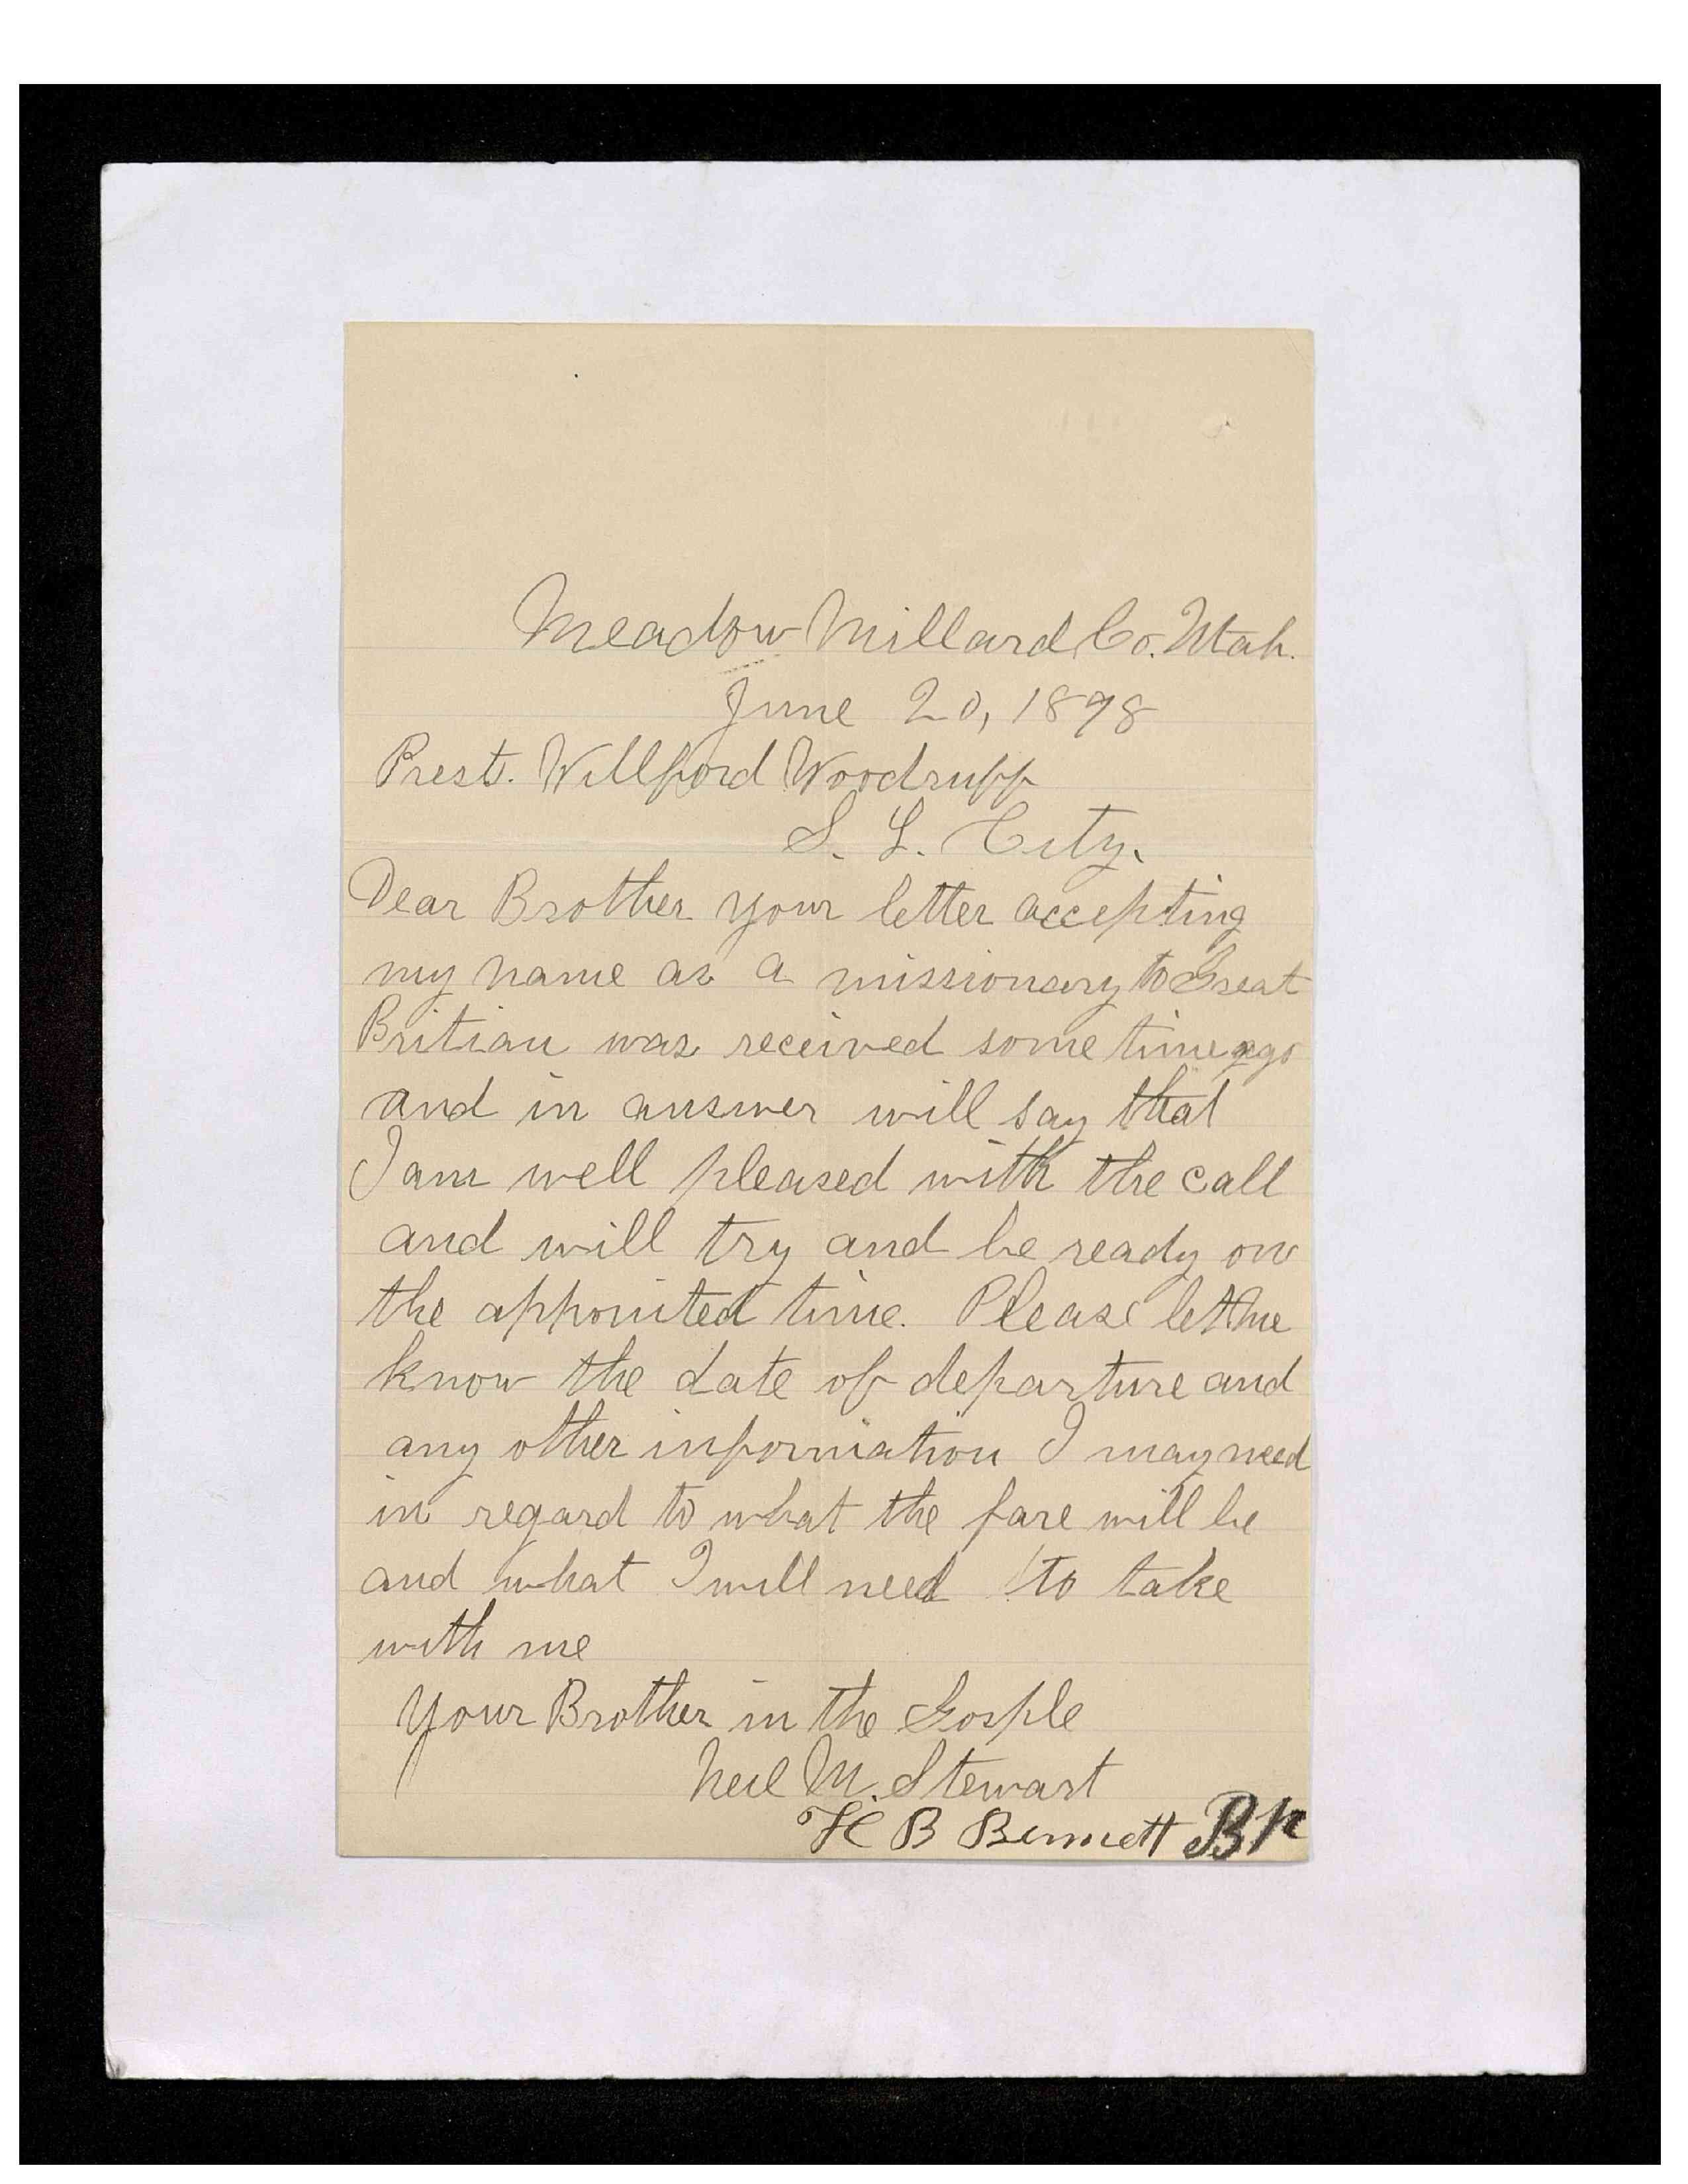 Meadow Millard Co. Utah.
June 20, 1898
Prest. Willford Woodruff
S. L. City.
Dear Brother your letter accepting
my name as a missionary to Great
Britian was received some time ago
and in answer will say that
I am well pleased with the call
and will try and be ready on
the appointed time. Please let me
know the date of departure and
any other information I may need
in regard to what the fare will be
and what I will need to take
with me
Your Brother in the Gosple
Neil M. Stewart
H B Bennett Bp